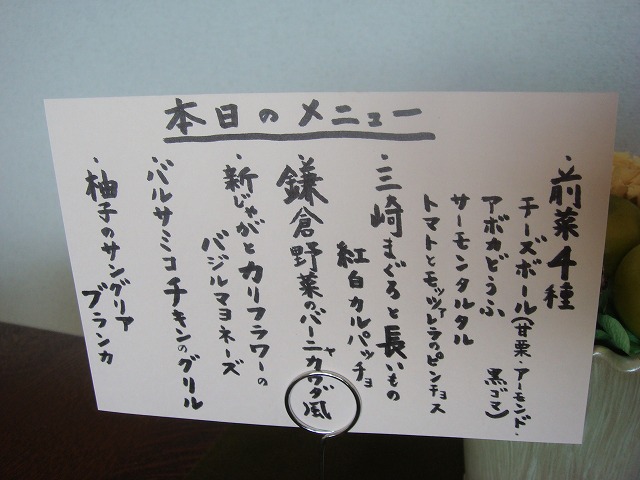 本日のメニュー
・前菜4種
チーズボール(甘栗・アーモンド・黒ゴマ)
アボカどうふ
サーモンタルタル
トマトとモッツァレラのピンチョス
・三崎まぐろと長いもの
紅白カルパッチョ
・鎌倉野菜のバーニャカウダ風
・新じゃがとカリフラワーの
バジルマヨネーズ
・バルサミコチキンのグリル
・柚子のサングリア
ブランカ